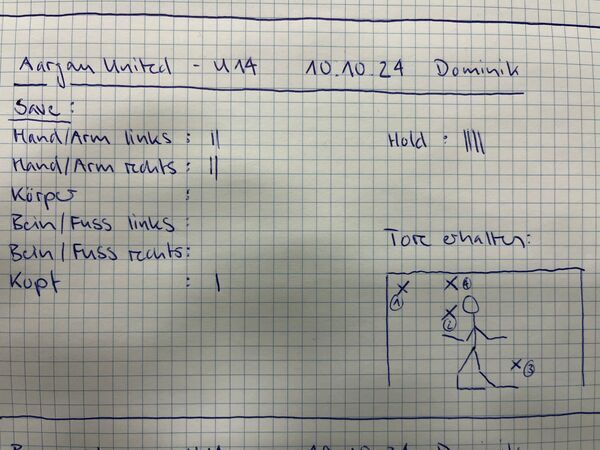 Aargau United - U14 10.10.24 Dominik
Save:
Hand/Arm links : || Hold : |||||
Hand/Arm rechts : ||
Körper :
Bein/Fuss links :
Bein/Fuss rechts: Tore erhalten:
Kopf : |
① ④
②
③
10.10.24 Dominik